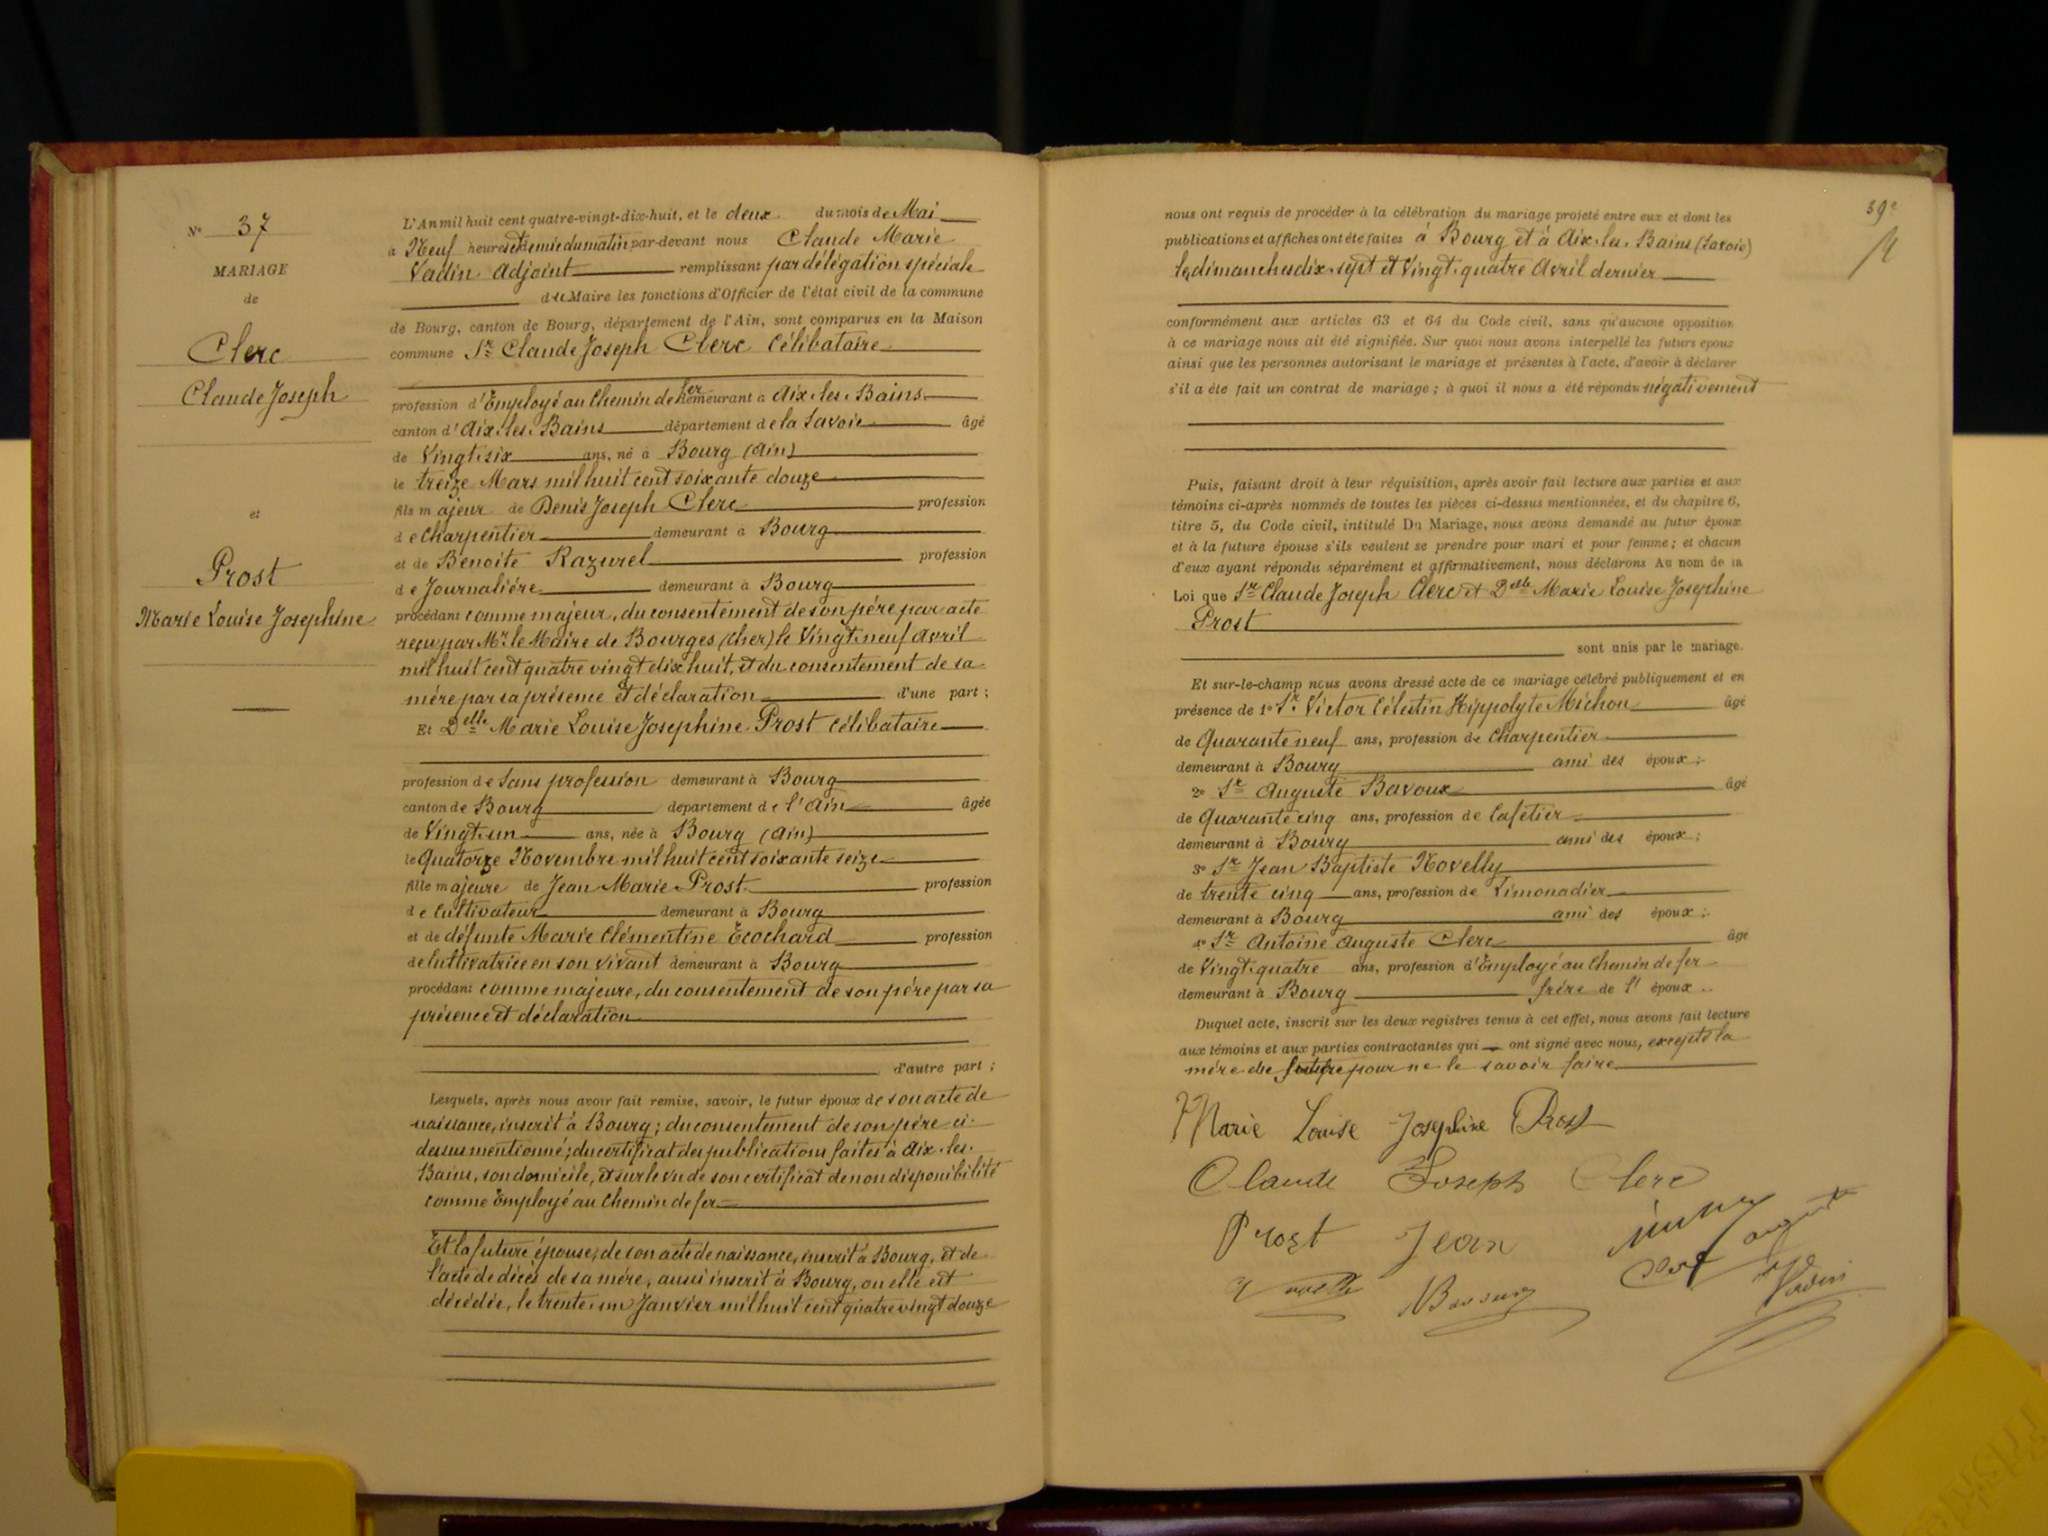 N° 37
MARIAGE
de
Clerc
Claude Joseph
et
Prost
Marie Louise Josephine
L'An mil huit cent quatre-vingt-dix-huit, et le deux du mois de Mai
à Neuf heures et demie du matin par-devant nous Claude Marie
Vadin Adjoint remplissant par délégation spéciale
du Maire les fonctions d'Officier de l'état civil de la commune
de Bourg, canton de Bourg, département de l'Ain, sont comparus en la Maison
commune Sr Claude Joseph Clerc célibataire
profession d'Employé au Chemin de fer demeurant à Aix-les-Bains
canton d'Aix-les-Bains département de la Savoie âgé
de Vingt-six ans, né à Bourg (Ain)
le treize Mars mil huit cent soixante douze
fils majeur de Denis Joseph Clerc profession
de Charpentier demeurant à Bourg
et de Benoite Razurel profession
de Journalière demeurant à Bourg
procédant comme majeur, du consentement de son père par acte
reçu par Mr le Maire de Bourges (Cher) le Vingt-neuf Avril
mil huit cent quatre vingt dix huit, et du consentement de sa
mère par sa présence et déclaration d'une part;
Et Delle Marie Louise Josephine Prost célibataire
profession de Sans profession demeurant à Bourg
canton de Bourg département de l'Ain âgée
de Vingt-un ans, née à Bourg (Ain)
le Quatorze Novembre mil huit cent soixante seize
fille majeure de Jean Marie Prost profession
de Cultivateur demeurant à Bourg
et de défunte Marie Clémentine Ecochard profession
de Cultivatrice en son vivant demeurant à Bourg
procédant comme majeure, du consentement de son père par sa
présence et déclaration
d'autre part;
Lesquels, après nous avoir fait remise, savoir, le futur époux de son acte de
naissance, inscrit à Bourg; du consentement de son père ci-
dessus mentionné; du certificat des publications faites à Aix-les-
Bains, son domicile, et sur le vu de son certificat de non disponibilité
comme Employé au Chemin de fer
Et la future épouse, de son acte de naissance, inscrit à Bourg, et de
l'acte de décès de sa mère, aussi inscrit à Bourg, où elle est
décédée, le trente-un Janvier mil huit cent quatre vingt douze
39e
nous ont requis de procéder à la célébration du mariage projeté entre eux et dont les
publications et affiches ont été faites à Bourg et à Aix-les-Bains (Savoie)
les dimanches dix-sept et Vingt-quatre Avril dernier
conformément aux articles 63 et 64 du Code civil, sans qu'aucune opposition
à ce mariage nous ait été signifiée. Sur quoi nous avons interpellé les futurs epoux
ainsi que les personnes autorisant le mariage et présentes à l'acte, d'avoir à déclarer
s'il a été fait un contrat de mariage; à quoi il nous a été répondu négativement
Puis, faisant droit à leur réquisition, après avoir fait lecture aux parties et aux
témoins ci-après nommés de toutes les pièces ci-dessus mentionnées, et du chapitre 6,
titre 5, du Code civil, intitulé Du Mariage, nous avons demandé au futur époux
et à la future épouse s'ils veulent se prendre pour mari et pour femme; et chacun
d'eux ayant répondu séparément et affirmativement, nous déclarons Au nom de la
Loi que Sr Claude Joseph Clerc et Delle Marie Louise Josephine
Prost
sont unis par le mariage.
Et sur-le-champ nous avons dressé acte de ce mariage célébré publiquement et en
présence de 1° Sr Victor Célestin Hippolyte Michon âgé
de Quarante neuf ans, profession de Charpentier
demeurant à Bourg ami des époux;
2° Sr Auguste Bavoux âgé
de Quarante cinq ans, profession de Cafetier
demeurant à Bourg ami des époux;
3° Sr Jean Baptiste Novelly
de trente cinq ans, profession de Limonadier
demeurant à Bourg ami des époux;
4° Sr Antoine Auguste Clerc âgé
de Vingt-quatre ans, profession d'Employé au Chemin de fer
demeurant à Bourg frère de l'époux
Duquel acte, inscrit sur les deux registres tenus à cet effet, nous avons fait lecture
aux témoins et aux parties contractantes qui ont signé avec nous, excepté la
mère du futur pour ne le savoir faire
Marie Louise Josephine Prost
Claude Joseph Clerc
Prost Jean
Vadin